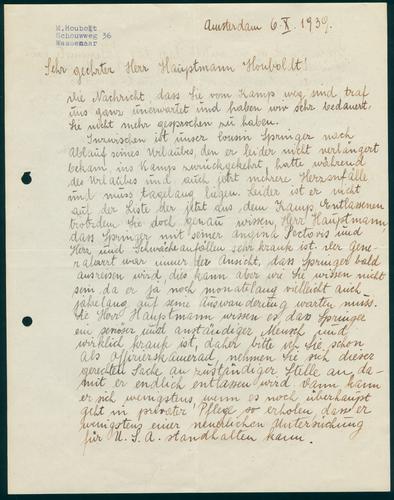 M. Houbolt
Schouwweg 36
Wassenaar
Amsterdam 6.X.1939.
Sehr geehrter Herr Hauptmann Houboldt!
Die Nachricht, dass Sie vom Kamps weg sind, traf
uns ganz unerwartet und haben wir sehr bedauert,
Sie nicht mehr gesprochen zu haben.
Inzwischen ist unser Cousin Springer nach
Ablauf seines Urlaubes, den er leider nicht verlängert
bekam, ins Kamps zurückgekehrt, hatte während
des Urlaubes und auch jetzt mehrere Herzanfälle
und muss tagelang liegen. Leider ist er nicht
auf der Liste der jetzt aus dem Kamps Entlassenen
trotzdem Sie doch genau wissen, Herr Hauptmann,
dass Springer mit seiner angina Pectoris und
Herz und Schwächeanfällen sehr krank ist. Der Gene-
ralarzt war immer der Ansicht, dass Springer bald
ausreisen wird, dies kann aber wie Sie wissen nicht
sein, da er ja noch monatelang vielleicht auch
jahrelang auf seine Auswanderung warten muss.
Sie Herr Hauptmann wissen es dass Springer
ein seriöser und anständiger Mensch und
wirklich krank ist, daher bitte ich Sie schon
als Offizierskamerad, nehmen Sie sich dieser
gerechten Sache an zuständiger Stelle an, da-
mit er endlich entlassen wird. Dann kann
er sich wenigstens, wenn es noch überhaupt
geht in privater Pflege so erholen, dass er
wenigstens einer neuerlichen Untersuchung
für U.S.A. standhalten kann.